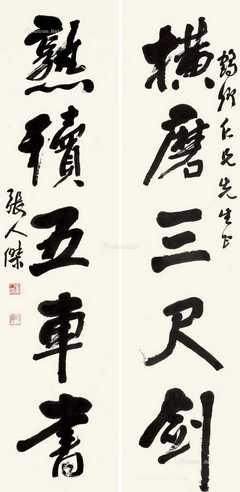 仁兄先生
橫磨三尺劍
熟讀五車書
張人傑